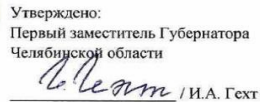 Утверждено:
Первый заместитель Губернатора
Челябинской области
/ И.А. Гехт